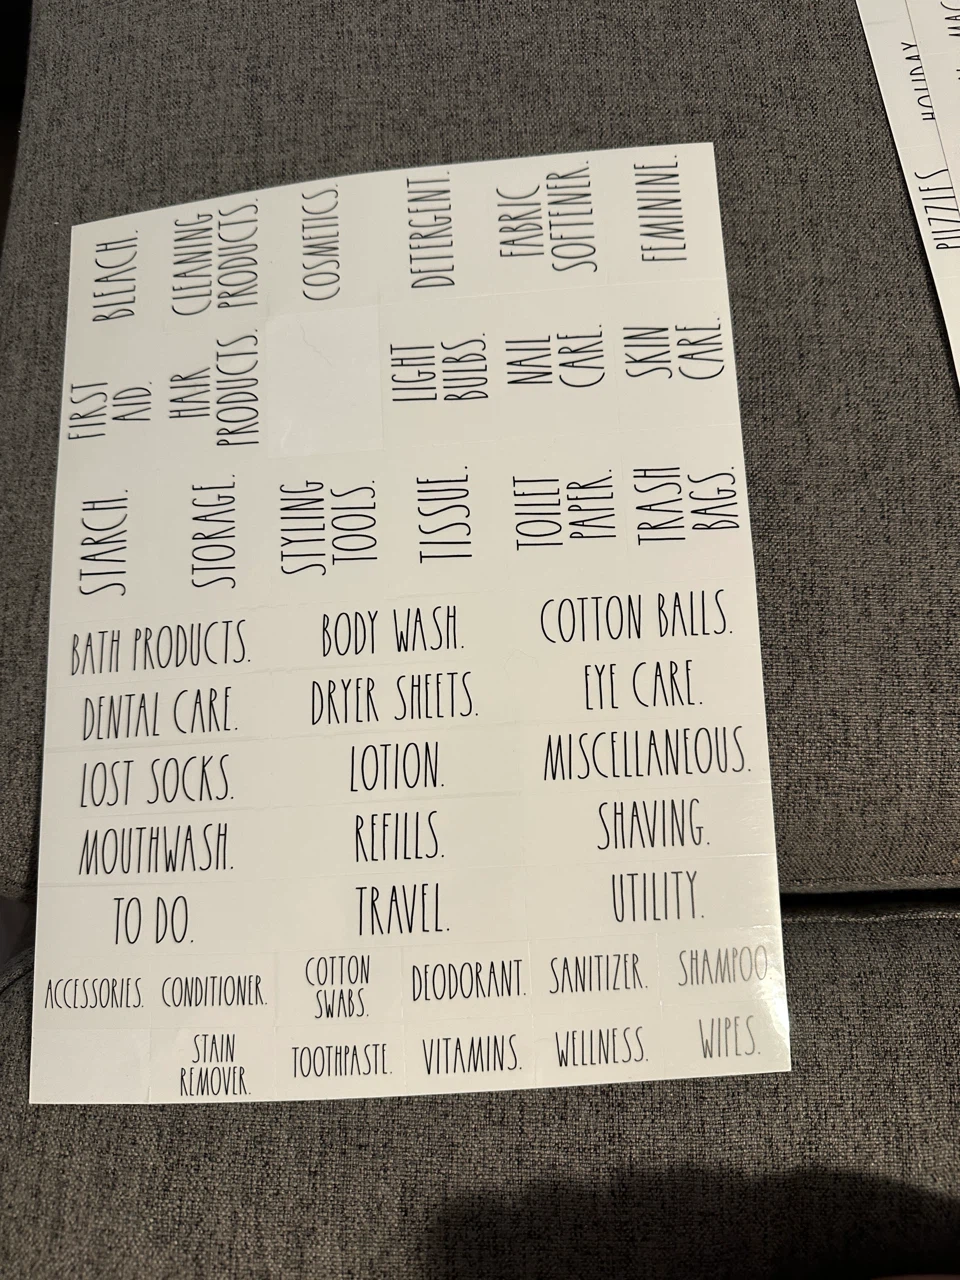 BLEACH.
CLEANING
PRODUCTS.
COSMETICS.
DETERGENT.
FABRIC
SOFTENER.
FEMININE.
FIRST
AID.
HAIR
PRODUCTS.
LIGHT
BULBS.
NAIL
CARE.
SKIN
CARE.
STARCH.
STORAGE.
STYLING
TOOLS.
TISSUE.
TOILET
PAPER.
TRASH
BAGS.
BATH PRODUCTS.
BODY WASH.
COTTON BALLS.
DENTAL CARE.
DRYER SHEETS.
EYE CARE.
LOST SOCKS.
LOTION.
MISCELLANEOUS.
MOUTHWASH.
REFILLS.
SHAVING.
TO DO.
TRAVEL.
UTILITY.
ACCESSORIES.
CONDITIONER.
COTTON
SWABS.
DEODORANT.
SANITIZER.
SHAMPOO
STAIN
REMOVER.
TOOTHPASTE.
VITAMINS.
WELLNESS.
WIPES.
PUZZLES
HOLIDAY